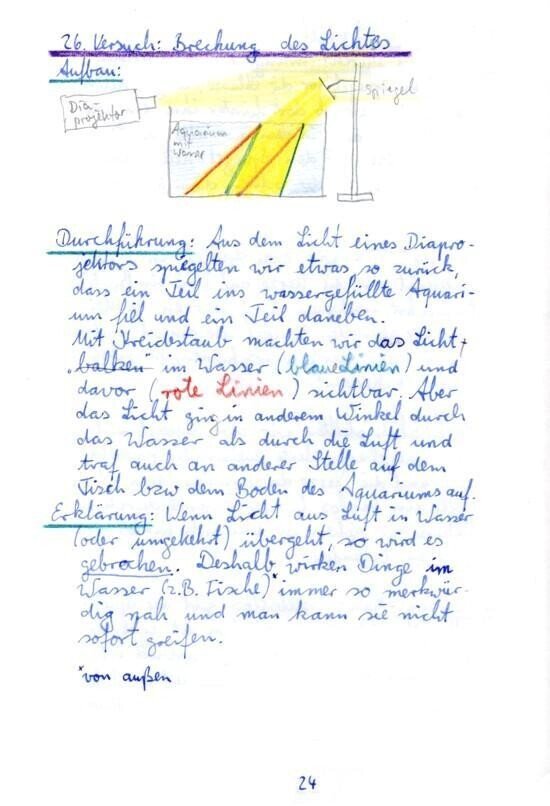 26. Versuch: Brechung des Lichtes
Aufbau:
Dia-
projektor
Spiegel
Aquarium
mit
Wasser
Durchführung: Aus dem Licht eines Diapro-
jektors spiegelten wir etwas so zurück,
dass ein Teil ins wassergefüllte Aquari-
um fiel und ein Teil daneben.
Mit Kreidestaub machten wir das Licht
„balken“ im Wasser (blaue Linien) und
davor (rote Linien) sichtbar. Aber
das Licht ging in anderem Winkel durch
das Wasser als durch die Luft und
traf auch an anderer Stelle auf dem
Tisch bzw dem Boden des Aquariums auf.
Erklärung: Wenn Licht aus Luft in Wasser
(oder umgekehrt) übergeht, so wird es
gebrochen. Deshalb wirken Dinge im
Wasser (z.B. Fische)* immer so merkwür-
dig nah und man kann sie nicht
sofort greifen.
*von außen
24